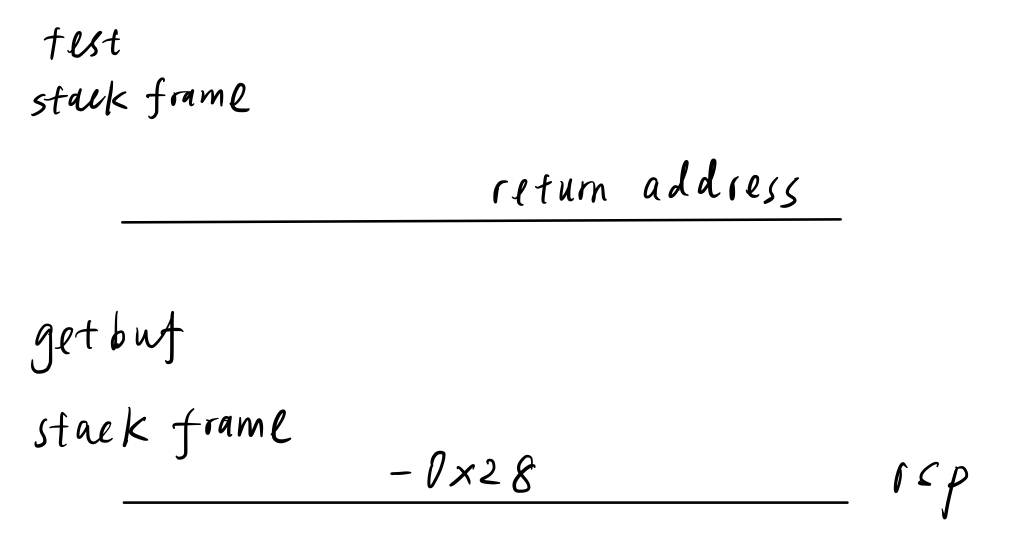 test
stack frame
return address
getbuf
stack frame
-0x28 rsp